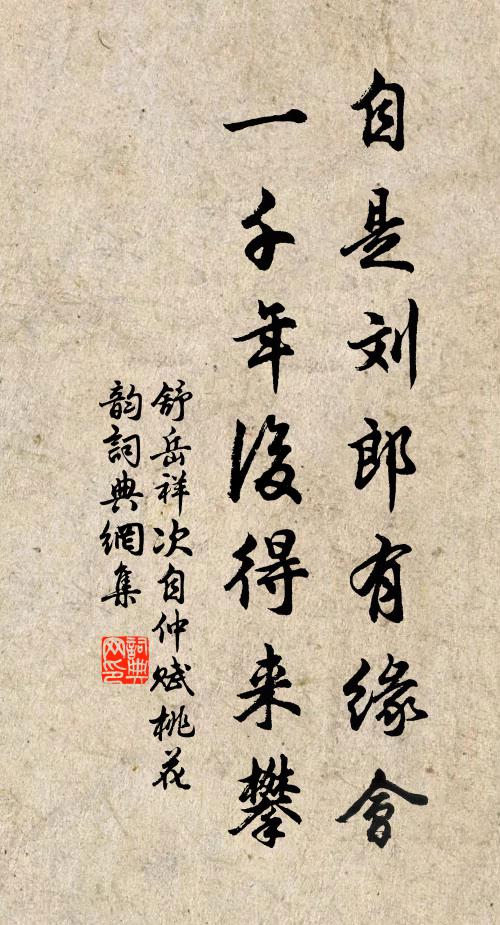 自是刘郎有缘會
一千年後得来攀
舒岳祥次自仲赋桃花
韵詞典網集
詞典
网印